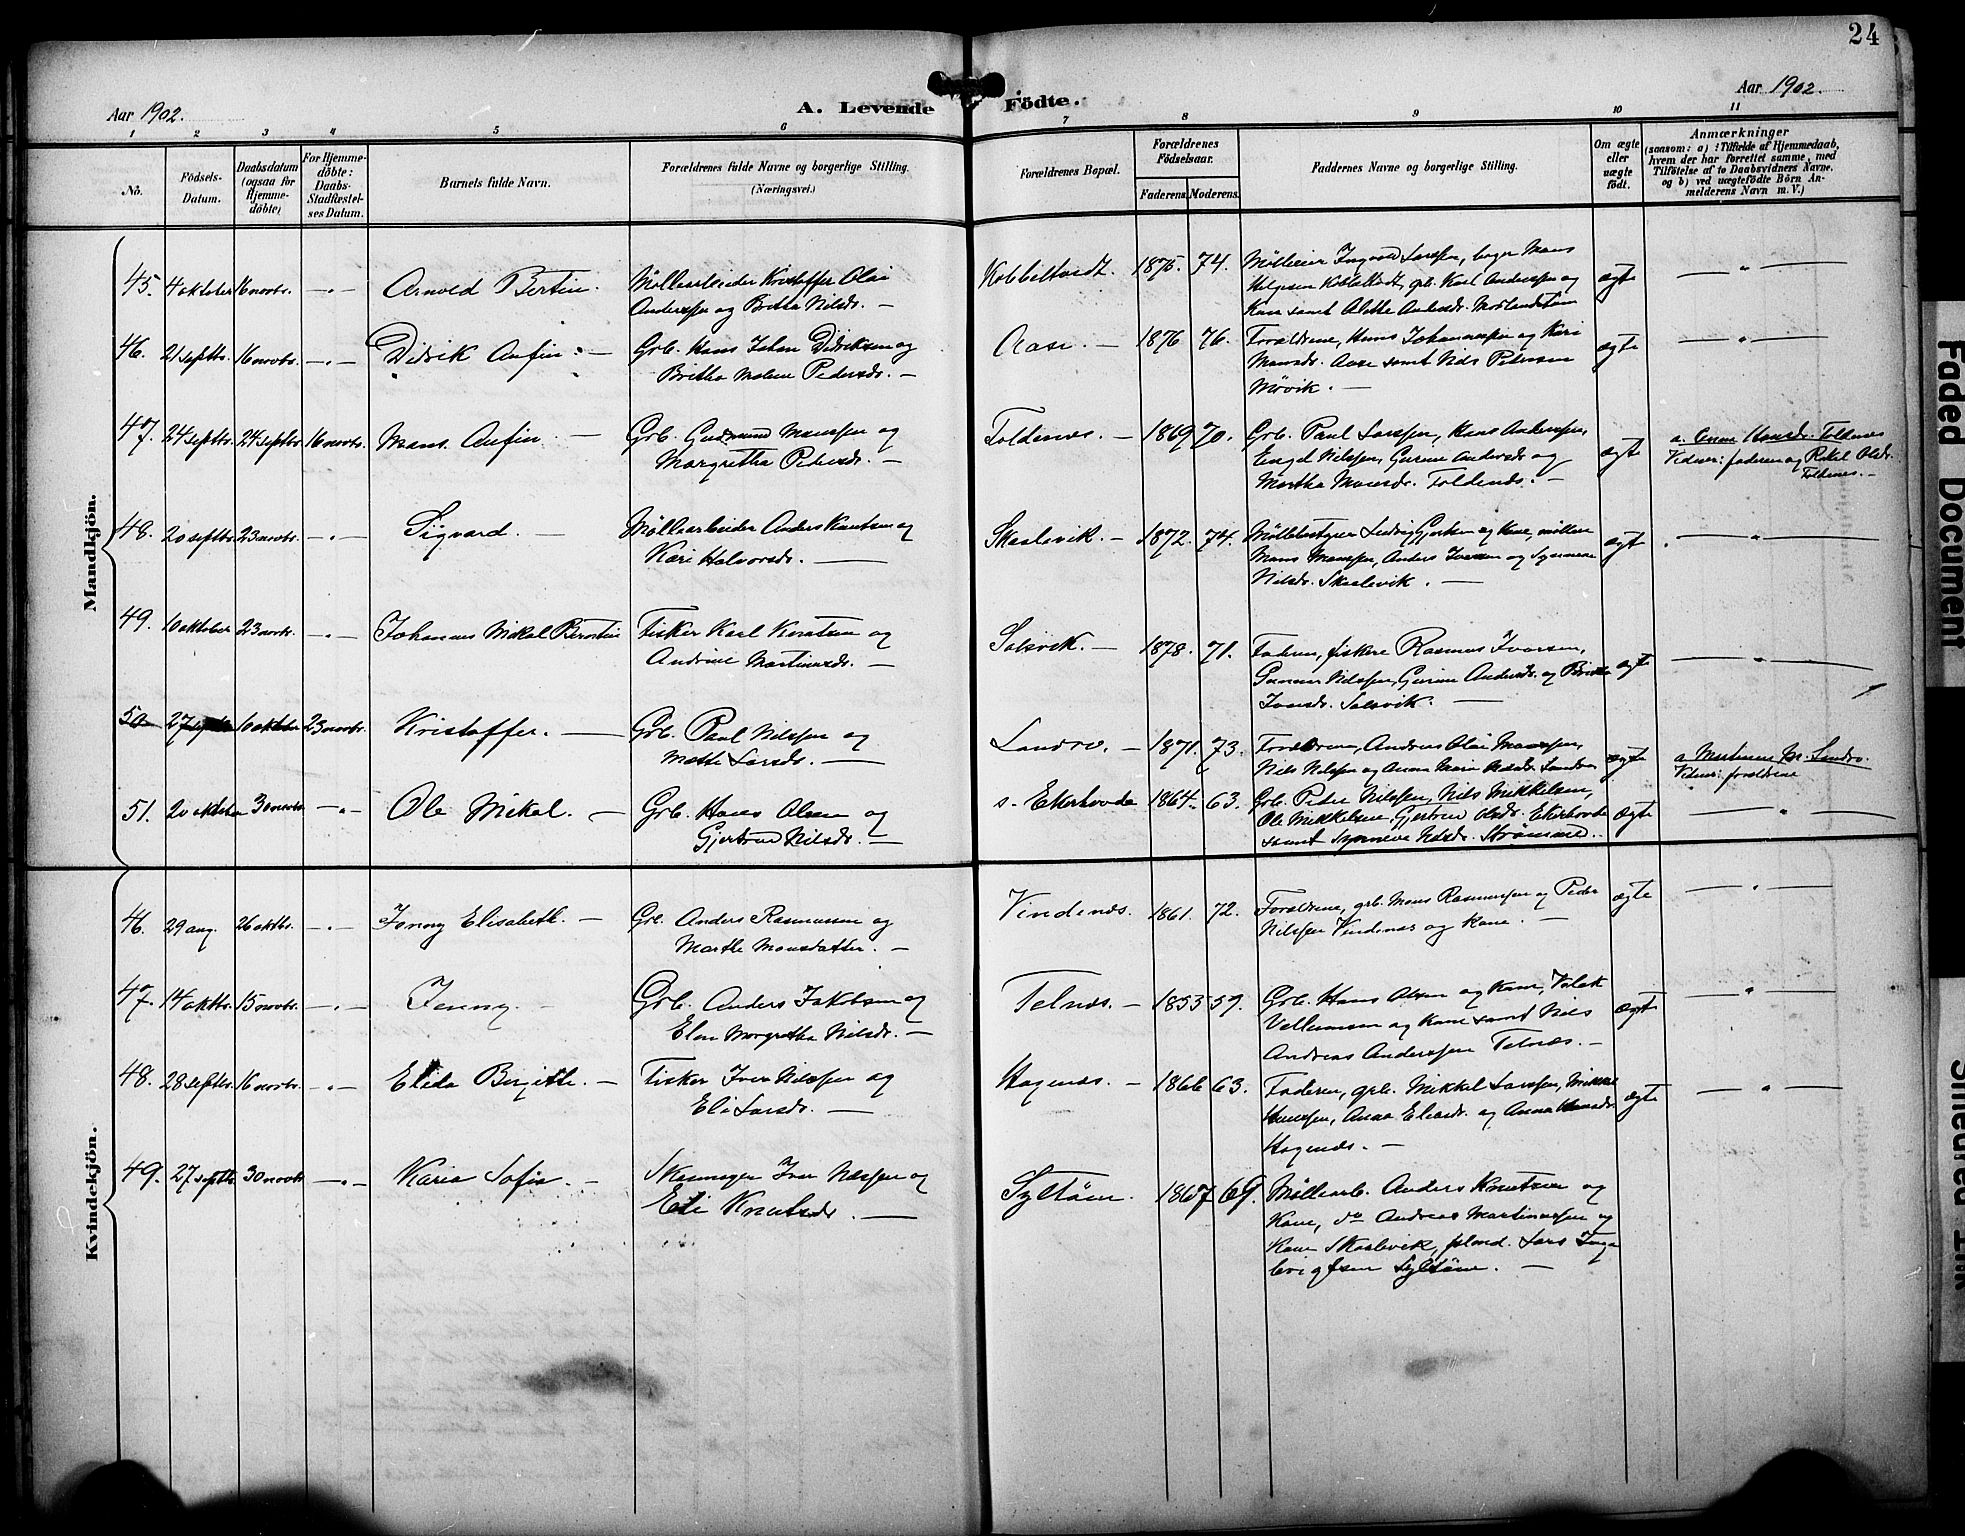 24
Aar 1902.
A. Levende Födte.
Aar 1902.
1 2 3 4 5 6 7 8 9 10 11
No.
Födsels-Datum.
Daabsdatum (ogsaa for Hjemme-döbte)
For Hjemme-döbte: Daabs-Stadfæstel-ses Datum.
Barnets fulde Navn.
Forældrenes fulde Navne og borgerlige Stilling.
(Næringsvei.)
Forældrenes Bopæl.
Forældrenes Födselsaar.
Faderens. Moderens.
Faddernes Navne og borgerlige Stilling.
Om ægte eller uægte födt.
Anmærkninger
(saasom: a) i Tilfælde af Hjemmedaab,
hvem der har forrettet samme, med
Tilföielse af to Daabsvidners Navne.
og b) ved uægtefödte Börn An-
melderens Navn m. V.)
Mandkjön.
45. 4 oktober 16 novbr. — " — Arnold Bertin. Möllearbeider Kristoffer Olai
Anderssen og Britha Nilsdr. —
Kobbeltvedt. 1875. 74. Mölleeier Ingvald Larssen, bager Mons
Helgesen Kobbeltvedt, grb. Karl Anderssen og
Kone samt Alethe Andersdr. ægte — " —
46. 21 septbr. 16 novbr. — " — Didrik Anfin. — Grb. Hans Johan Didriksen og
Britha Malene Pedersdr. —
Aase. — 1876 76. Forældrene, Hans Johannessen og Kari
Monsdr. Aase samt Nils Petersen
Mövik. — ægte — " —
47. 24 septbr. 24 septbr. 16 novbr. Mons Anfin. — Grb. Gudmund Monssen og
Margretha Pedersdr. —
Toldenæs. — 1869 70. Grb. Paul Larssen, Hans Anderssen,
Engel Nilssen, Gurine Andersdr. og
Martha Monsdr. Toldenæs. — ægte
a. Anna Hansdr. Toldnes
Vidner: faderen og Rakel Olsdr.
Toldnes. —
48. 20 septbr. 23 novbr. — " — Sigvard. — Möllearbeider Anders Knutsen og
Kari Halvorsdr. —
Skaalevik. — 1872. 74. Möllebestyrer Ludvig Gjertsen og Kone, möller
Mons Monssen, Anders Iversen og Synneve
Nilsdr. Skaalevik. — ægt — " —
49. 10 oktober 23 novbr. — " — Johannes Mikal Berntin Fisker Karl Knutsen og
Andrine Martinusdr. —
Solsvik. — 1878. 71. Faderen, fiskere Rasmus Iversen,
Gunnar Nilssen, Gurine Andersdr. og Britha
Iversdr. Solsvik. — ægte — " —
50 27 10 oktober 23 novbr. Kristoffer. — Grb. Paul Nilssen og
Mette Larsdr. —
Landro. — 1871. 73. Forældrene, Andreas Olai Monssen,
Nils Nilssen og Anna Marie Nilsdr. Landro ægte
a. Martinus Landro.
Vidner: forældrene
51. 20 oktober 30 novbr. — " — Ole Mikal. — Grb. Hans Olsen og
Gjertrud Nilsdr. —
s. Ekerhovde 1864. 63. Grb. Peder Nilssen, Nils Mikkelsen,
Ole Mikkelsen, Gjertrud Olsdr. Ekerhovde
samt Synneve Nilsdr. Strömme. ægte — " —
Kvindekjön.
46. 29 aug. 26 oktbr. — " — Jenny Elisabeth. — Grb. Anders Rasmussen og
Marthe Monsdatter. —
Vindenæs. 1861. 72. Forældrene, grb. Mons Rasmussen og Peder
Nilssen Vindenæs og Kone. — ægte — " —
47. 14 oktbr. 15 novbr. — " — Jenny — Grb. Anders Jakobsen og
Elen Margretha Nilsdr. —
Telnæs. — 1853 59. Grb. Hans Olsen og Kone,
Villumsen og Kone samt Nils
Andreas Anderssen Telnæs. — ægte — " —
48. 28 septbr. 16 novbr. — " — Elida Birgithe. — Fisker Iver Nilssen og
Eli Larsdr. —
Hagenæs. — 1866 63. Faderen, grb. Mikkel Larssen, Mikkel
Hanssen, Anna Eliasdr. og Anna Hansdr.
Hagenæs. — ægte — " —
49. 27 septbr. 30 novbr. — " — Karia Sofia. — Skomager Iver Nilssen og
Eli Knutsdr. —
Syltöen. 1867 69. Möllearb. Anders Knutsen og
Kone, do Andreas Martinussen og
Kone Skaalevik, Lars Inge
brigtsen Syltöen. —
Faded Document
Smeared Ink